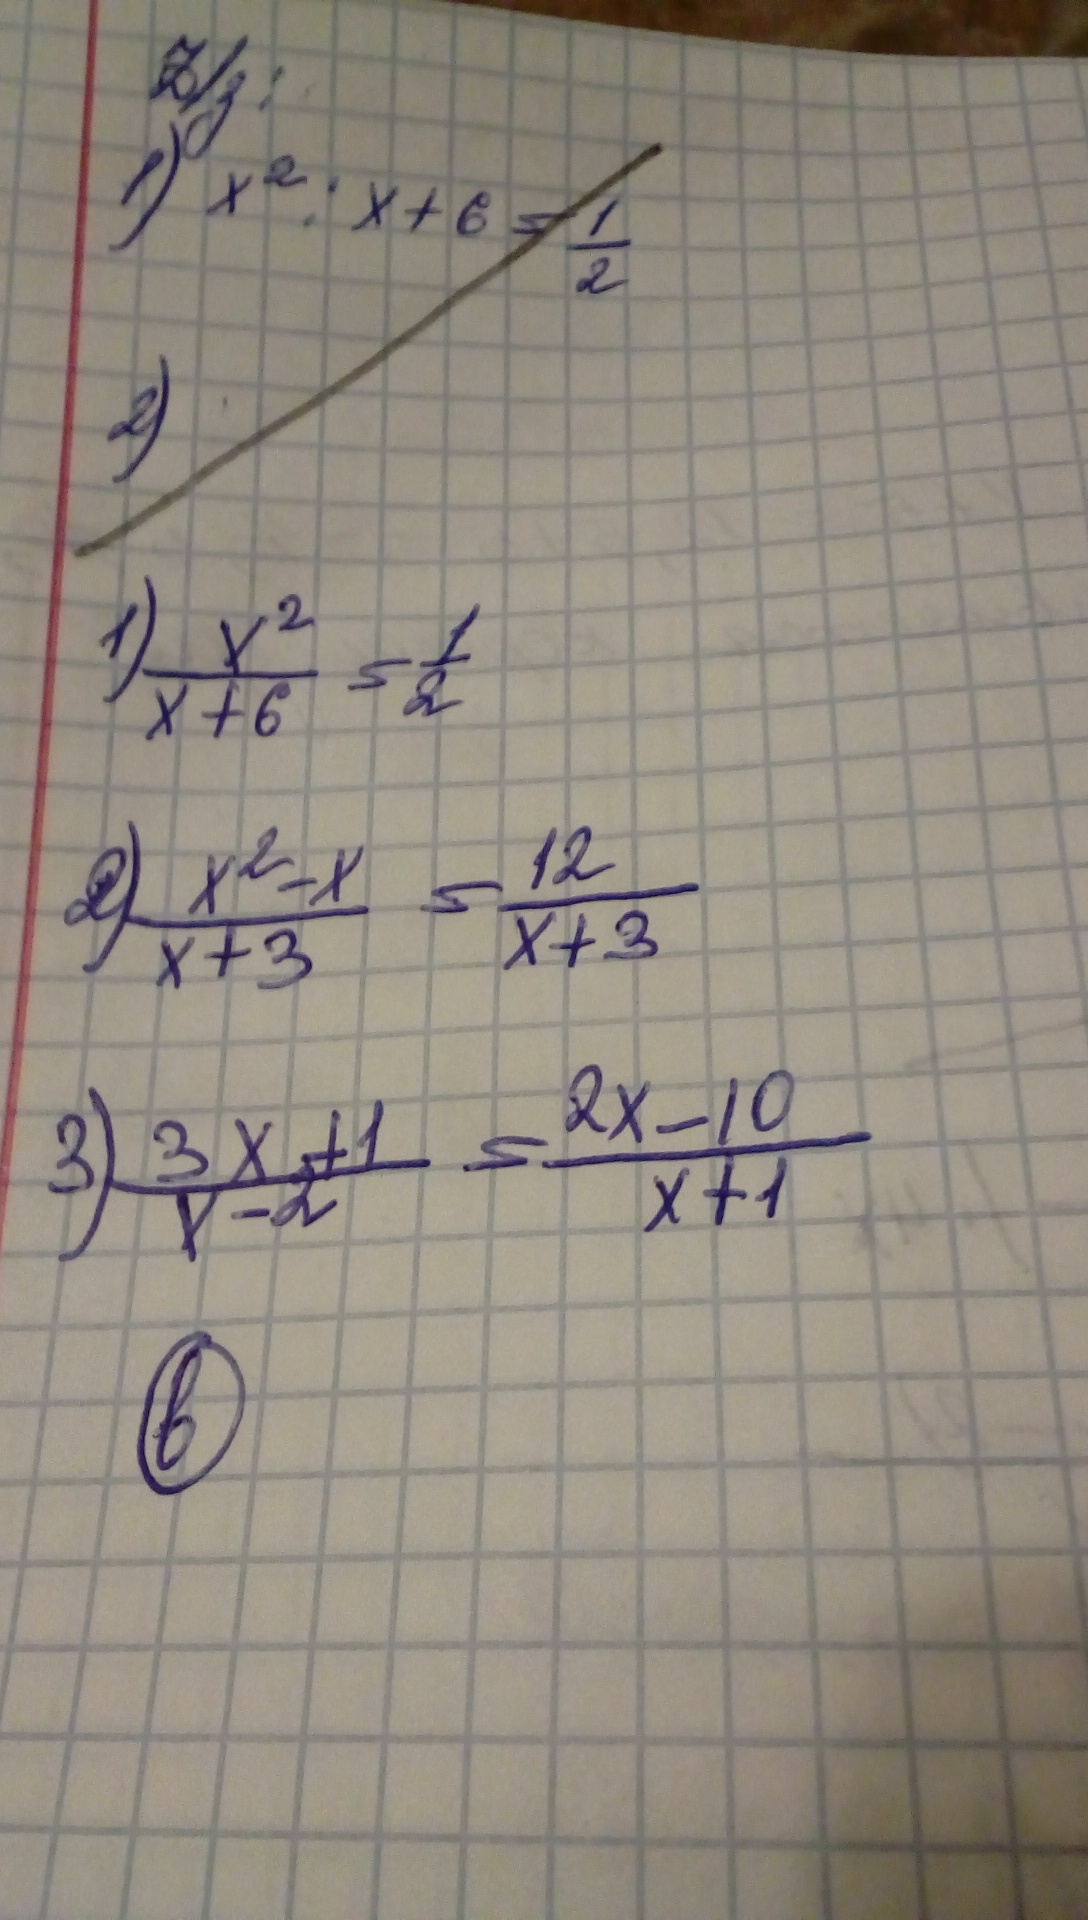 Д/з:
1) x² : x + 6 = 1/2
2)
1) x²/(x+6) = 1/2
2) (x²-x)/(x+3) = 12/(x+3)
3) (3x+1)/(x-2) = (2x-10)/(x+1)
в